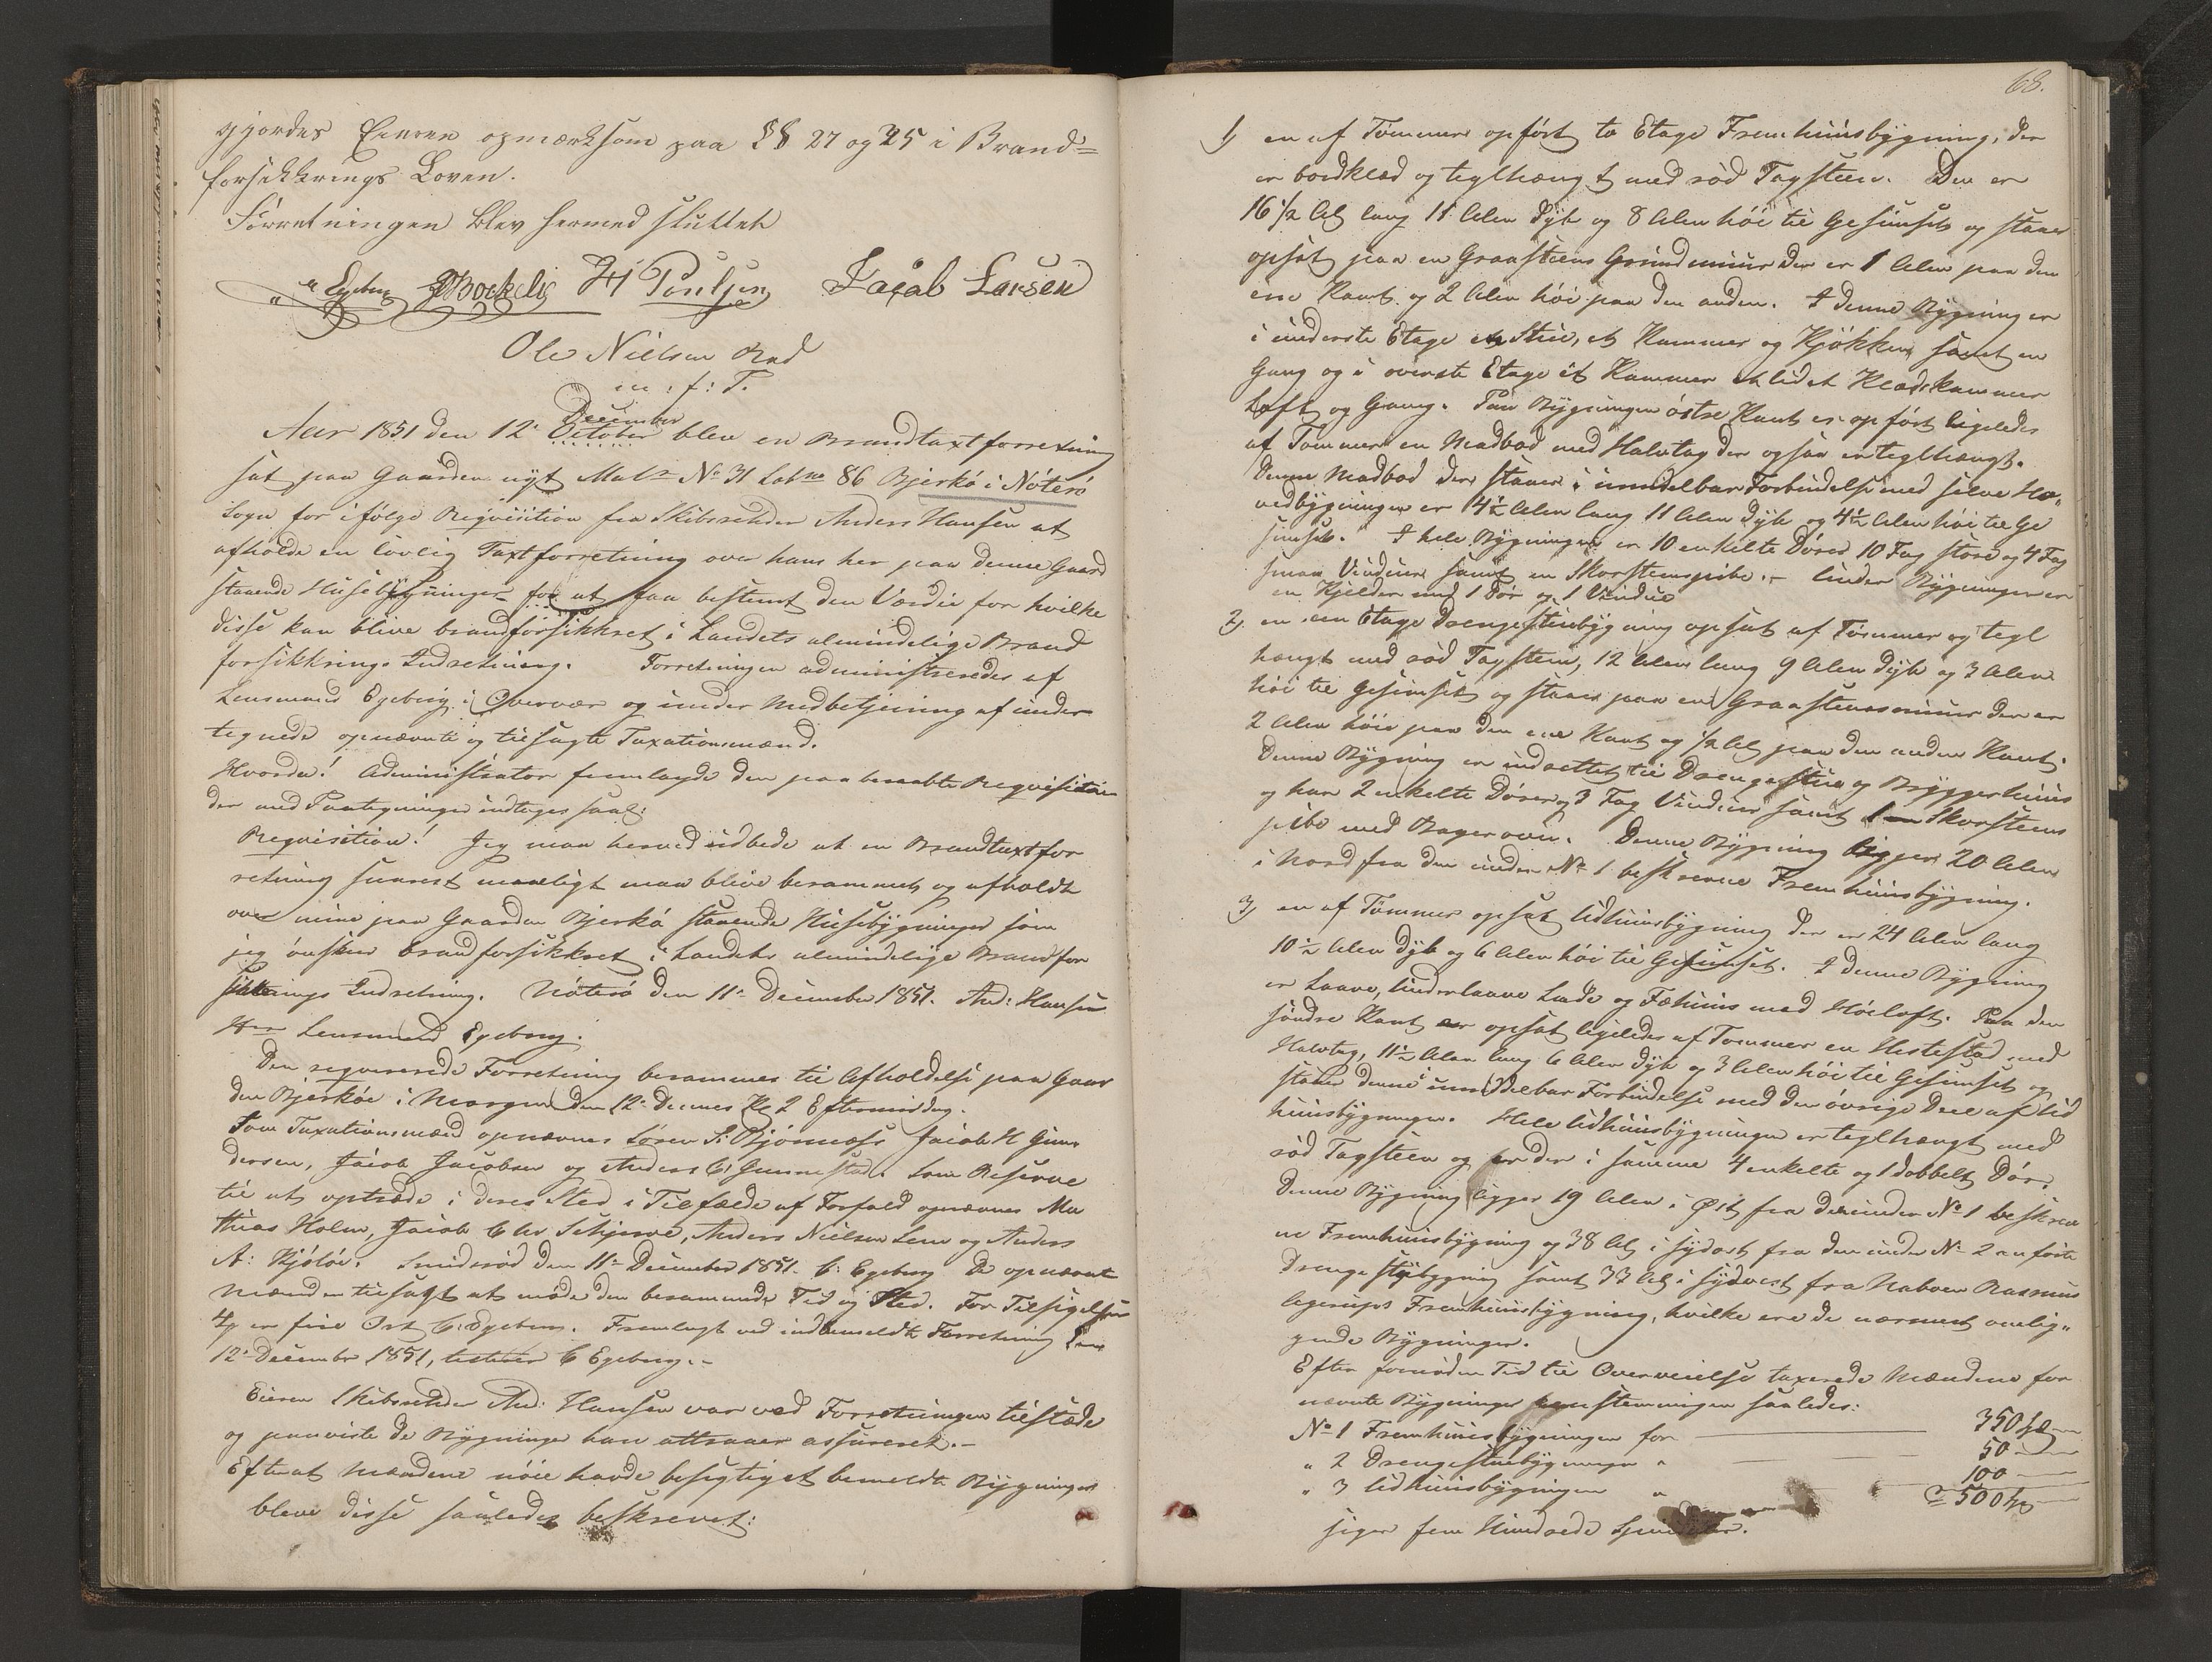 gjordes Eieren opmærksom paa §§ 27 og 25 i Brand=
forsikkrings Loven.
Forretningen blev hermed sluttet
Egeberg JBockelie H Poulsen Jacob Larsen
Ole Nielsen Rød
m: f: P.
December
Aar 1851 den 12te October blev en Brandtaxtforretning
sat paa Gaarden nyt Matr No 31 Løbno 86 Bjerkø i Nøterø
Sogn for ifølge Reqvisition fra Skibsrheder Anders Hansen at
afholde en lovlig Taxtforretning over hans her paa denne Gaard
staaende Husebygninger for at faa bestemt den Værdie for hvilke
disse kan blive brandforsikkret i Landets almindelige Brand
forsikkrings Indretning. Forretningen administreredes af
Lensmand Egeberg i Overvær og under Medbetjening af under
tegnede opnævnte og tilsagte Taxationsmænd.
Hvorda! Administrator fremlagde den paa beraabte Reqvisition
der med Paategninger indtages saal:
Reqvisition! Jeg maa herved udbede at en Brandtaxtfor
retning snarest mueligt maa blive berammet og afholdt
over mine paa Gaarden Bjerkø staaende Husebygninger som
jeg ønsker brandforsikkret i Landets almindelige Brandfor
sikkrings Indretning. Nøterø den 11te December 1851. And: Hansen
Hr Lensmand Egeberg.
Den reqvirerede Forretning berammes til Afholdelse paa Gaar
den Bjerkøe i Morgen den 12te Dennes Kl 2 Eftermiddag.
Som Taxationsmænd opnævnes Søren S. Bjønnæss Jacob H Gun
dersen, Jacob Jacobsen og Anders C: Gunnestad. Som Reserve
til at optræde i deres Sted i Tilfælde af Forfald opnævnes Ma
thias Holm, Jacob Chr Schjerve, Anders Nielsen Lene og Anders
A: Kjøløe. Smidsrød den 11te December 1851. C: Egeberg De opnævnte
Mænd er tilsagt at møde den berammede Tid og Sted. For Tilsigelsen
4 er fire Ort C. Egeberg. Fremlagt ved indbemeldte Forretning den
12te December 1851, testerer C Egeberg.-
Eieren Skibsrheder And: Hansen var ved Forretningen tilstæde
og paaviste de Bygninger han attraaer assureret.-
Efterat Mændene nøie havde besigtiget bemeldte Bygninger
bleve disse saaledes beskrevet:
68.
1) en af Tømmer opført to Etage Fremhuusbygning, der
er bordklæd og teglhængt med rød Tagsteen. Den er
16 1/2 Al lang 11 Alen dyb og 8 Alen høi til Gesimset og staaer
opsat paa en Graasteens Grundmuur der er 1 Alen paa den
ene Kant og 2 Alen høi paa den anden. I denne Bygning er
i underste Etage en Stue, et Kammer og Kjøkken samt en
Gang og i øverste Etage et Kammer et lidet Klædekammer
Loft og Gang. Paa Bygningens østre Kant er opført ligeledes
af Tømmer en Madbod med Halvtag der ogsaa er teglhængt.
Denne Madbod der staaer i umidelbar Forbindelse med selve Ho-
vedbygningen er 4 1/2 Alen lang 11 Alen dyb og 4 1/2 Alen høi til Ge
simset. I hele Bygningen er 10 enkelte Døre 10 Fag store og 4 Fag
smaa Vinduer samt en Skorsteenspibe.- Under Bygningen er
en Kjelder med 1 Dør og 1 Vindue
2) en een Etage Drengestuebygning opsat af Tømmer og tegl
hængt med rød Tagsteen, 12 Alen lang 9 Alen dyb og 3 Alen
høi til Gesimset og staaer paa en Graasteensmuur der er
2 Alen høi paa den ene Kant og 1/2 Al paa den anden Kant.
Denne Bygning er indrettet til Drengestue og Bryggerhuus
og har 2 enkelte Døre og 3 Fag Vinduer samt 1 Skorsteens
pibe med Bagerovn. Denne Bygning ligger 20 Alen
i Nord fra den under No 1 beskrevne Fremhuusbygning.
3) en af Tømmer opsat Udhuusbygning der er 24 Alen lang
10 1/2 Alen dyb og 6 Alen høi til Gesimset. I denne Bygning
er Laave, Underlaave Lade og Fæhuus med Høeloft. Paa den
søndre Kant er opsat ligeledes af Tømmer en Hestestad med
Halvtag, 11 1/2 Alen lang 6 Alen dyb og 3 Alen høi til Gesimset og
staaer denne i umiddelbar Forbindelse med den øvrige Deel af Ud
huusbygningen. Hele Udhuusbygningen er teglhængt med
rød Tagsteen og er der i samme 4 enkelte og 1 dobbelt Dør.
Denne Bygning ligger 19 Alen i Øst fra den under No 1 beskrev
ne Fremhuusbygning og 38 Al i Sydost fra den under No 2 anførte
Drengestuebygning samt 33 Al i Sydvest fra Naboen Rasmus
Fremhuusbygning, hvilke ere de nærmest omlig-
gende Bygninger.
Efter fornøden Tid til Overveielse taxerede Mændene for
nævnte Bygninger eenstemmigen saaledes:
No 1 Fremhuusbygningen for — 350
" 2 Drengestuebygningen " — 50
" 3 Udhuusbygningen " — 100
500
siger fem Hundrede Speciedaler.